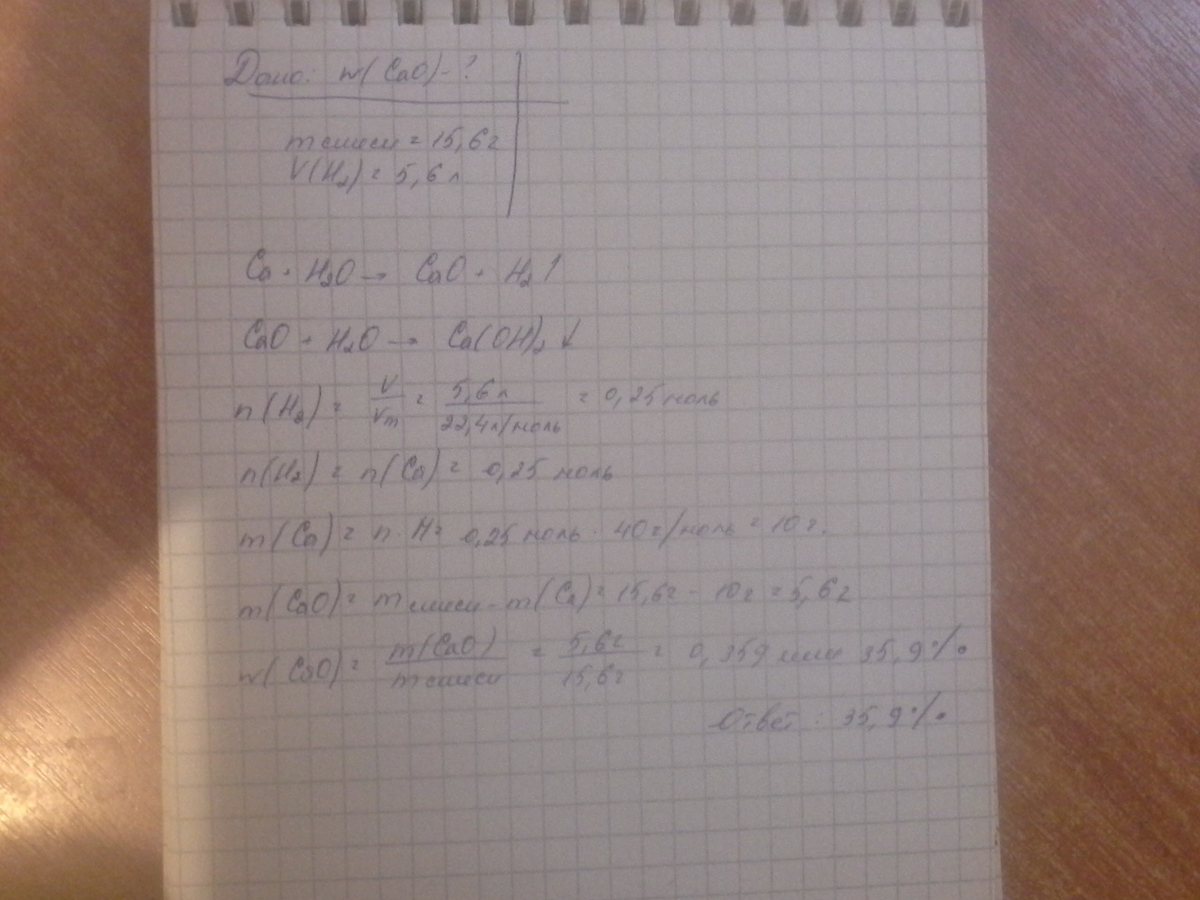 Дано: w(CaO)-?
m смеси = 15,6г
V(H₂) = 5,6 л
Ca + H₂O → CaO + H₂↑
CaO + H₂O → Ca(OH)₂↓
n(H₂) = V/Vm = 5,6 л/22,4л/моль = 0,25 моль
n(H₂) = n(Ca) = 0,25 моль
m(Ca) = n · M = 0,25 моль · 40 г/моль = 10 г.
m(CaO) = m смеси - m(Ca) = 15,6г - 10г = 5,6г
w(CaO) = m(CaO)/m смеси = 5,6г/15,6г = 0,359 или 35,9%
Ответ: 35,9%